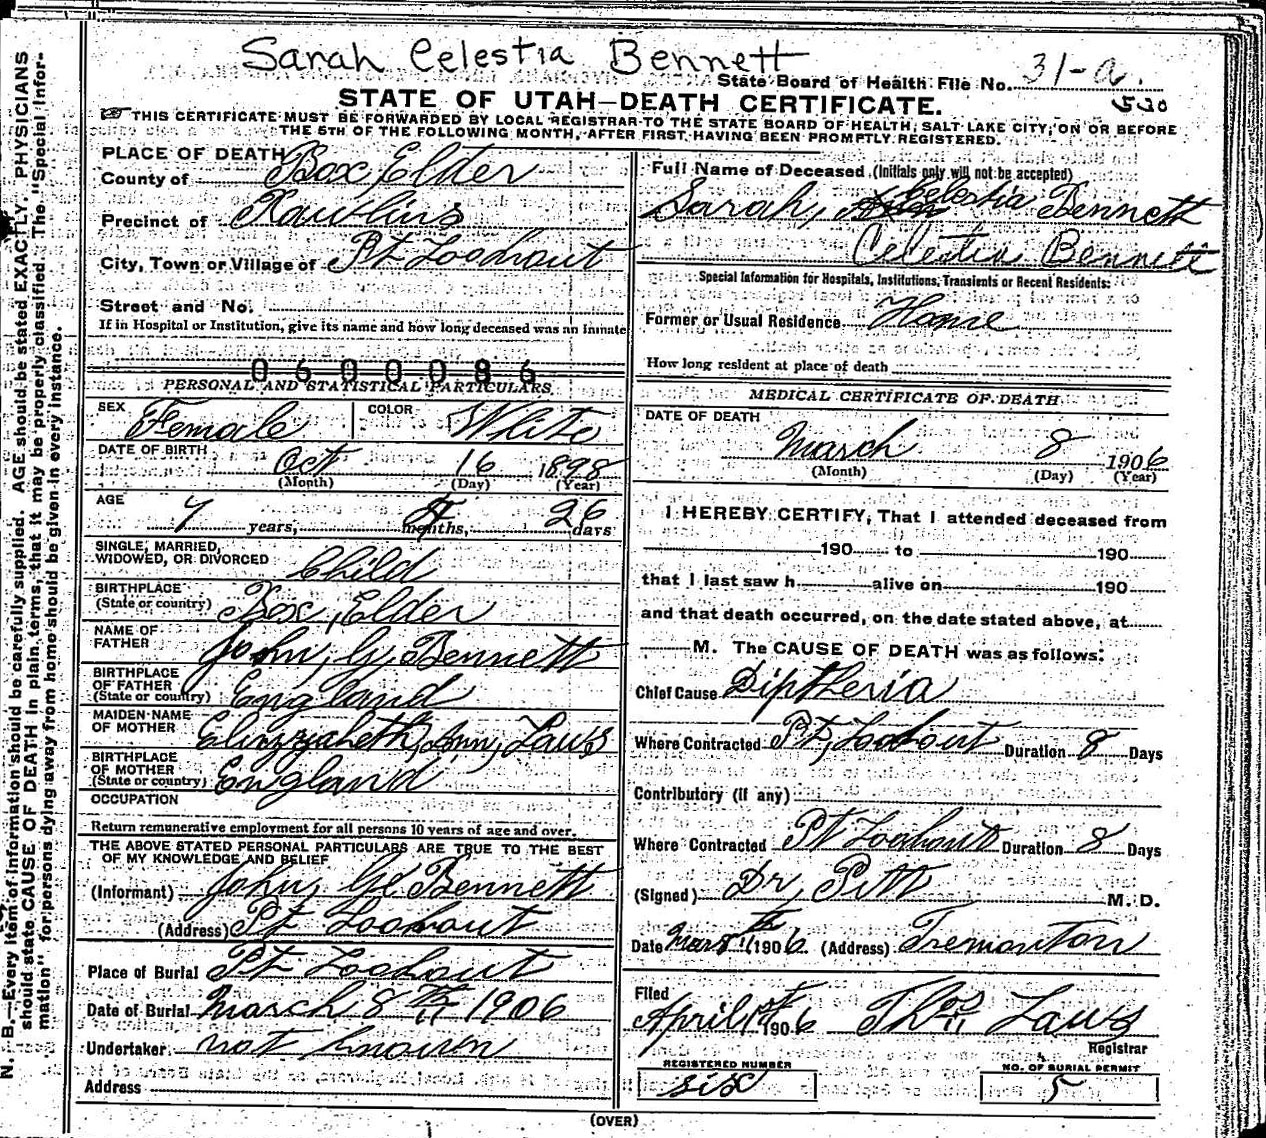 Sarah Celestia Bennett
State Board of Health File No. 31-a.
530
STATE OF UTAH—DEATH CERTIFICATE.
THIS CERTIFICATE MUST BE FORWARDED BY LOCAL REGISTRAR TO THE STATE BOARD OF HEALTH, SALT LAKE CITY, ON OR BEFORE
THE 5TH OF THE FOLLOWING MONTH, AFTER FIRST HAVING BEEN PROMPTLY REGISTERED.
PLACE OF DEATH
County of Box Elder
Precinct of Rawlins
City, Town or Village of Pt Lookout
Street and No.
If in Hospital or Institution, give its name and how long deceased was an inmate
0600086
PERSONAL AND STATISTICAL PARTICULARS
SEX Female COLOR White
DATE OF BIRTH Oct 16 1898
(Month) (Day) (Year)
AGE 7 years, months, 26 days
SINGLE, MARRIED,
WIDOWED, OR DIVORCED Child
BIRTHPLACE
(State or country) Box Elder
NAME OF
FATHER John G. Bennett
BIRTHPLACE
OF FATHER
(State or country) England
MAIDEN NAME
OF MOTHER Elizzabeth, Ann, Laws
BIRTHPLACE
OF MOTHER
(State or country) England
OCCUPATION
Return remunerative employment for all persons 10 years of age and over.
THE ABOVE STATED PERSONAL PARTICULARS ARE TRUE TO THE BEST
OF MY KNOWLEDGE AND BELIEF
(Informant) John, Bennett
(Address) Pt Lookout
Place of Burial Pt Lookout
Date of Burial March 8th 1906
Undertaker not known
Address
Full Name of Deceased (Initials only will not be accepted)
Sarah, Celestia Bennett
Celestia Bennett
Special Information for Hospitals, Institutions, Transients or Recent Residents:
Former or Usual Residence Home
How long resident at place of death
MEDICAL CERTIFICATE OF DEATH
DATE OF DEATH
March 8 1906
(Month) (Day) (Year)
I HEREBY CERTIFY, That I attended deceased from
190 to 190
that I last saw h alive on 190
and that death occurred, on the date stated above, at
M. The CAUSE OF DEATH was as follows:
Chief Cause Diptheria
Where Contracted Pt, Lookout Duration 8 Days
Contributory (if any)
Where Contracted Pt Lookout Duration 8 Days
(Signed) Dr, Pitt M. D.
Date Mar 8th 1906 (Address) Tremonton
Filed
April 1st 1906 Thos Laws
Registrar
REGISTERED NUMBER
six
NO. OF BURIAL PERMIT
5
(OVER)
N. B.—Every item of information should be carefully supplied. AGE should be stated EXACTLY. PHYSICIANS
should state CAUSE OF DEATH in plain terms, that it may be properly classified. The "Special Infor-
mation" for persons dying away from home should be given in every instance.